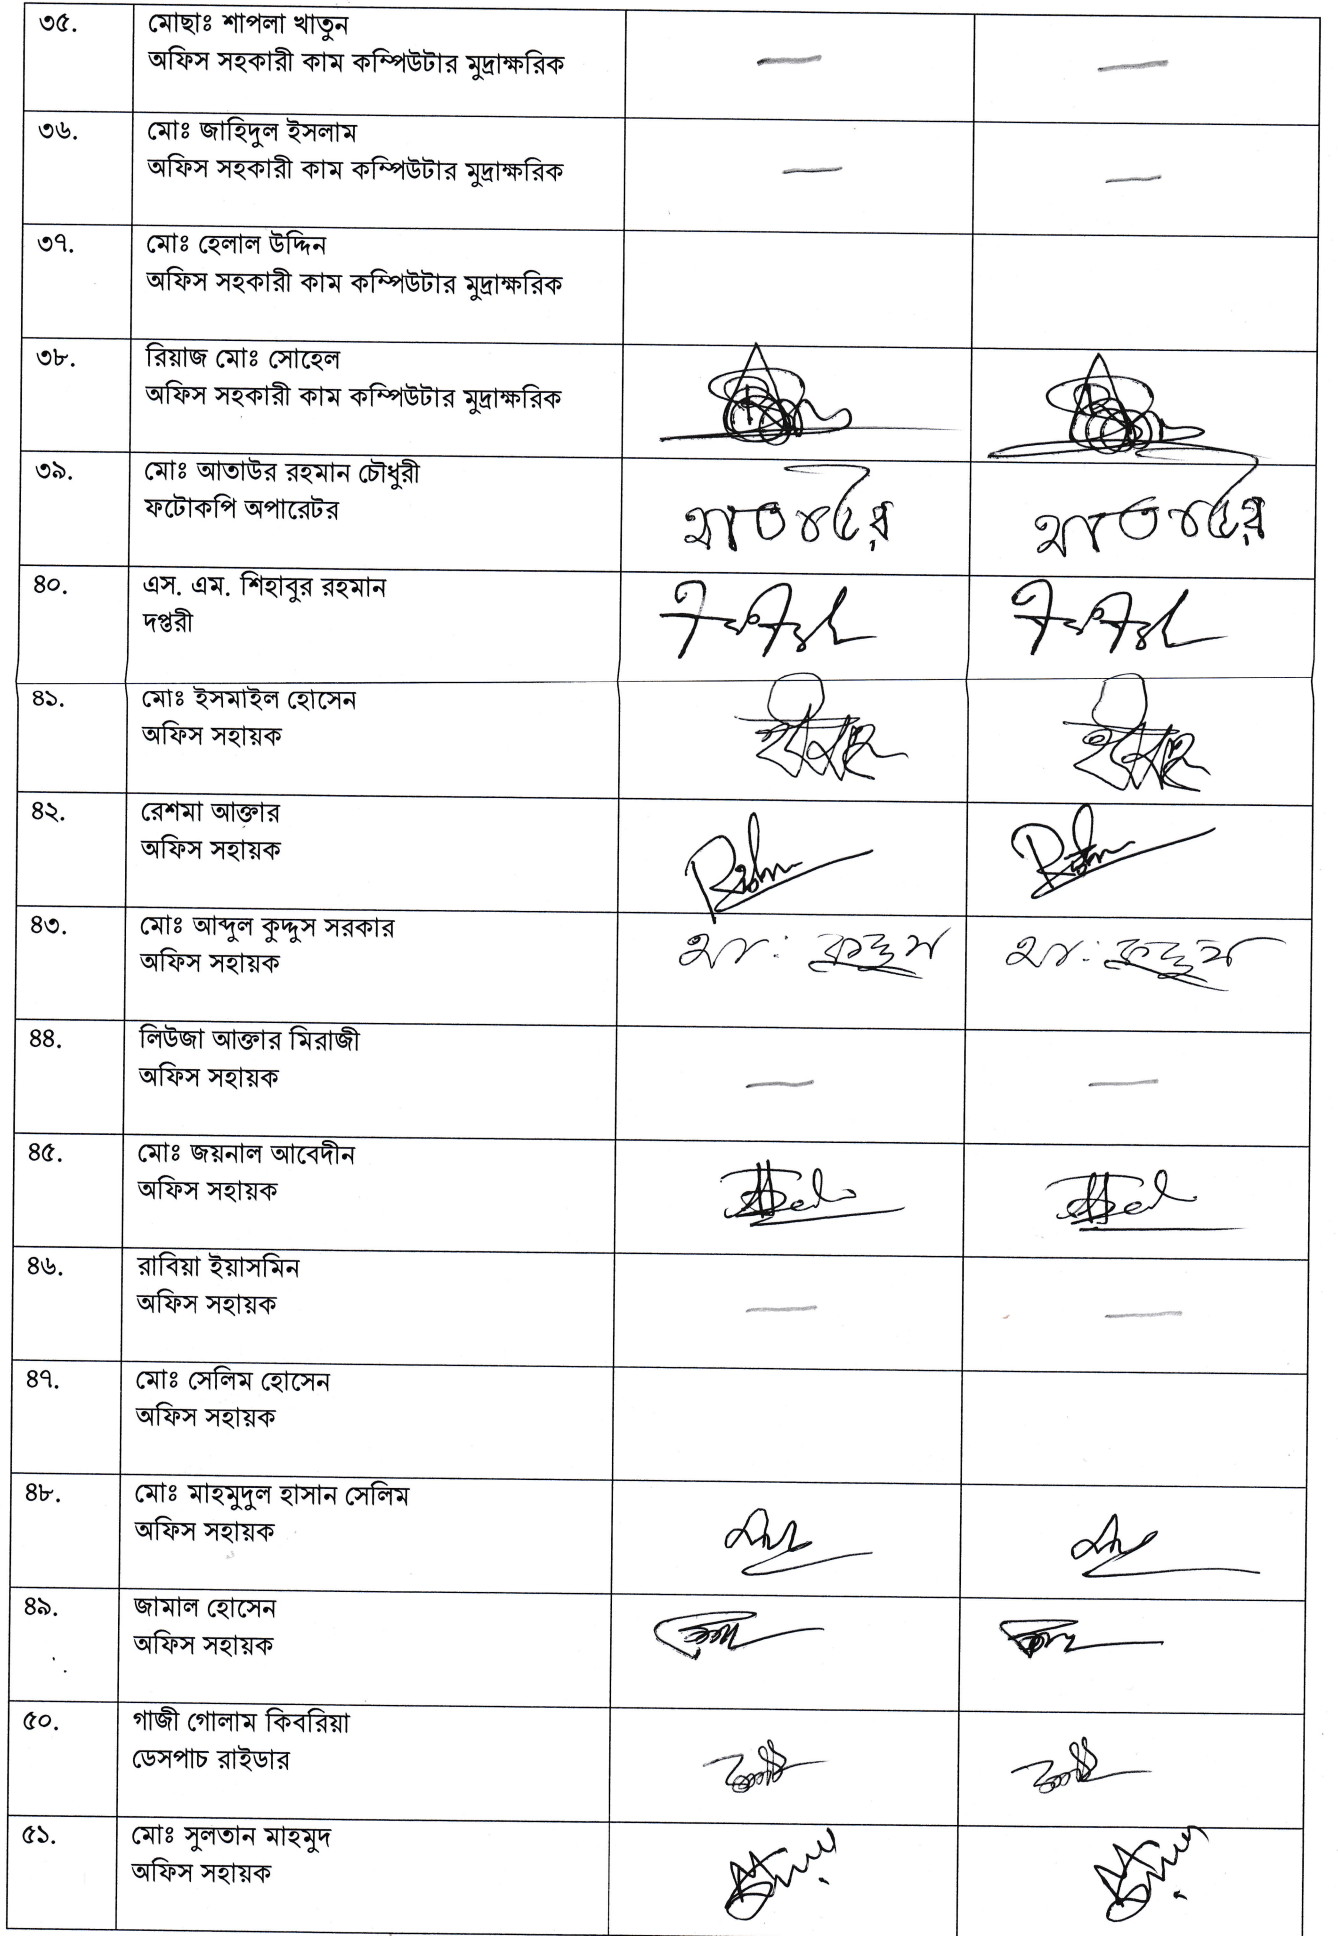 ৩৫. মোছাঃ শাপলা খাতুন
অফিস সহকারী কাম কম্পিউটার মুদ্রাক্ষরিক
৩৬. মোঃ জাহিদুল ইসলাম
অফিস সহকারী কাম কম্পিউটার মুদ্রাক্ষরিক
৩৭. মোঃ হেলাল উদ্দিন
অফিস সহকারী কাম কম্পিউটার মুদ্রাক্ষরিক
৩৮. রিয়াজ মোঃ সোহেল
অফিস সহকারী কাম কম্পিউটার মুদ্রাক্ষরিক
৩৯. মোঃ আতাউর রহমান চৌধুরী
ফটোকপি অপারেটর
৪০. এস. এম. শিহাবুর রহমান
দপ্তরী
৪১. মোঃ ইসমাইল হোসেন
অফিস সহায়ক
৪২. রেশমা আক্তার
অফিস সহায়ক
৪৩. মোঃ আব্দুল কুদ্দুস সরকার
অফিস সহায়ক আঃ কুদ্দুস আঃ কুদ্দুস
৪৪. লিউজা আক্তার মিরাজী
অফিস সহায়ক
৪৫. মোঃ জয়নাল আবেদীন
অফিস সহায়ক
৪৬. রাবিয়া ইয়াসমিন
অফিস সহায়ক
৪৭. মোঃ সেলিম হোসেন
অফিস সহায়ক
৪৮. মোঃ মাহমুদুল হাসান সেলিম
অফিস সহায়ক
৪৯. জামাল হোসেন
অফিস সহায়ক
৫০. গাজী গোলাম কিবরিয়া
ডেসপাচ রাইডার
৫১. মোঃ সুলতান মাহমুদ
অফিস সহায়ক